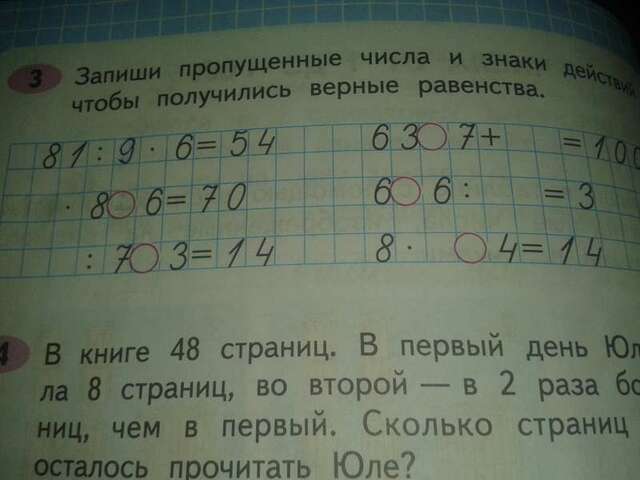 3 Запиши пропущенные числа и знаки действий
чтобы получились верные равенства.
81 : 9 · 6 = 54 63 ◯ 7 + = 100
· 8 ◯ 6 = 70 6 ◯ 6 : = 3
: 7 ◯ 3 = 14 8 · ◯ 4 = 14
4 В книге 48 страниц. В первый день Юл
ла 8 страниц, во второй — в 2 раза бо
ниц, чем в первый. Сколько страниц
осталось прочитать Юле?